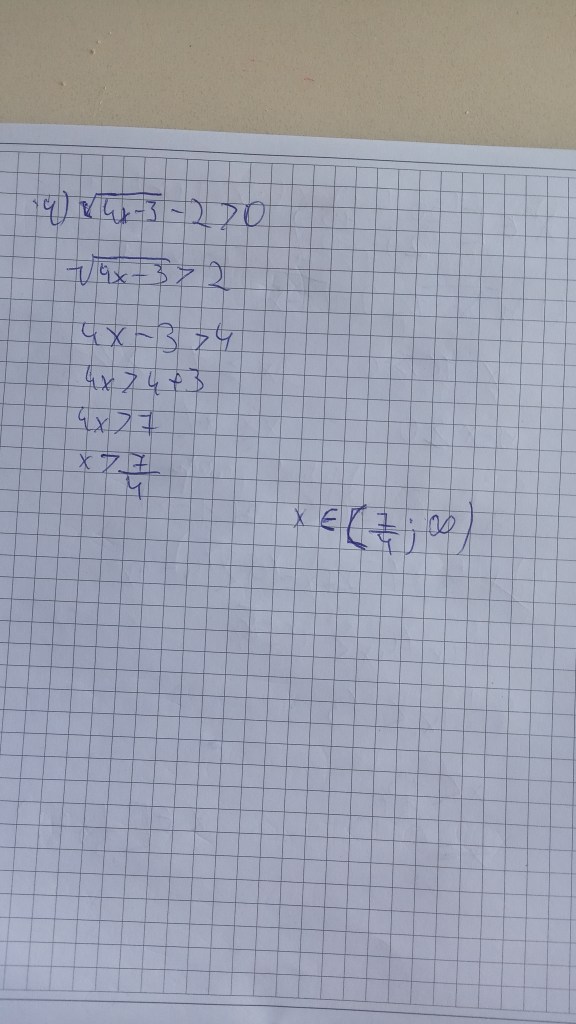 4) √4x-3 - 2 > 0
√4x-3 > 2
4x - 3 > 4
4x > 4 + 3
4x > 7
x > 7/4
x ∈ (7/4 ; ∞)